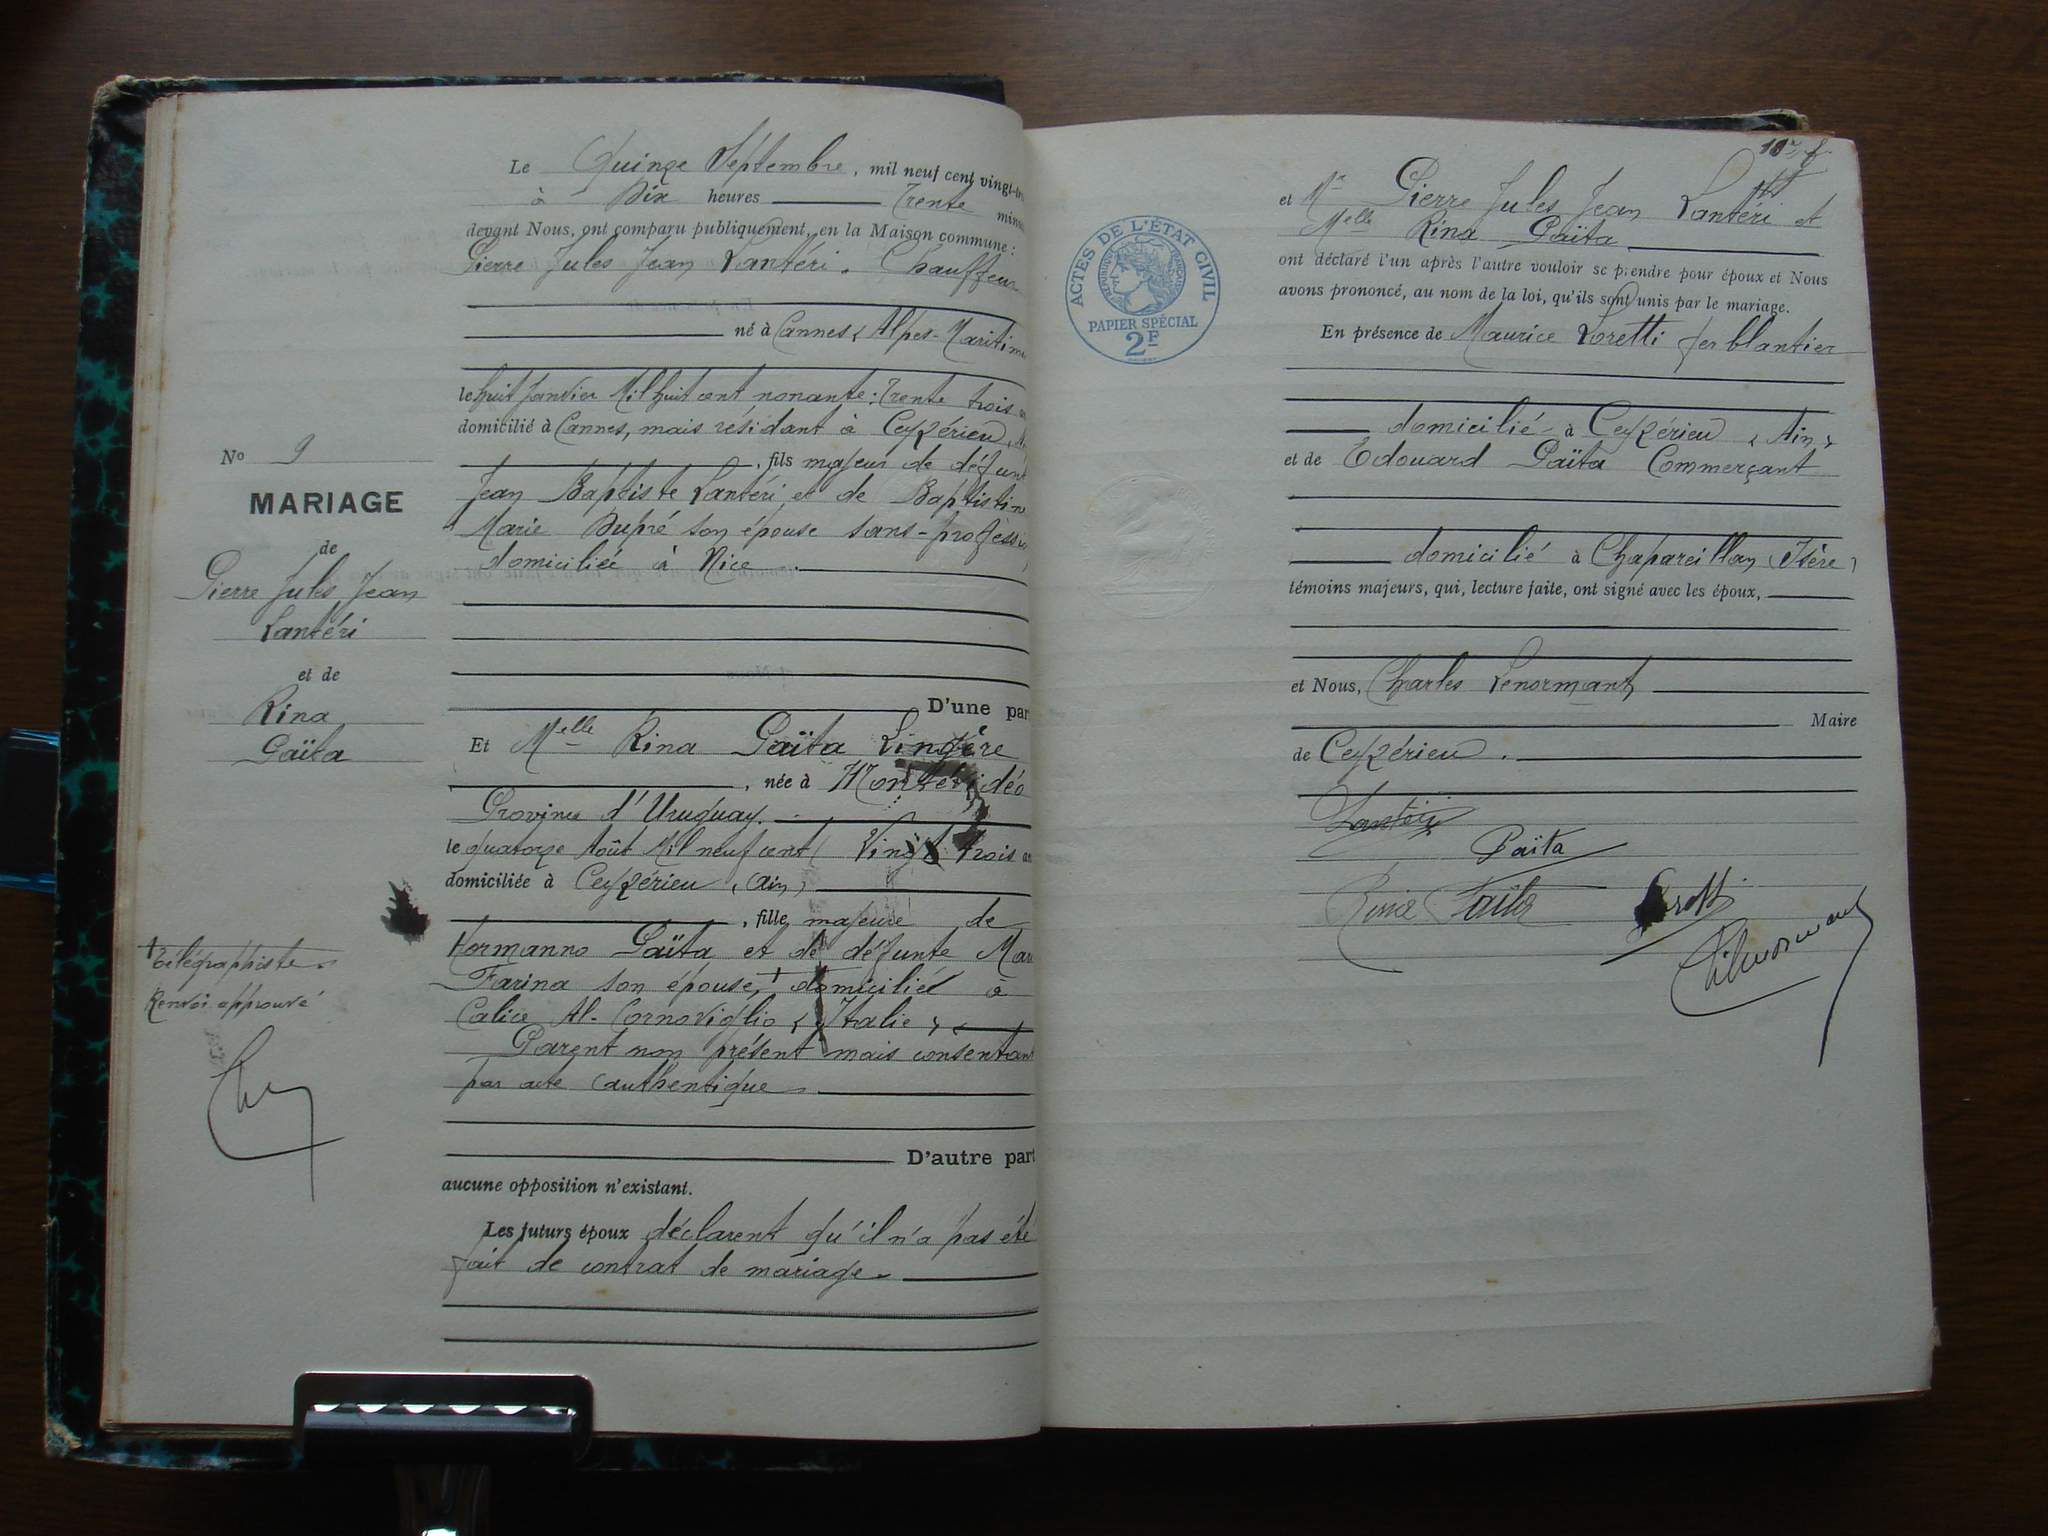 Le Quinze Septembre, mil neuf cent vingt-tr
à Dix heures Trente minu
devant Nous, ont comparu publiquement, en la Maison commune :
Pierre Jules Jean Lantéri. Chauffeur
né à Cannes (Alpes-Maritime
le huit Janvier Mil huit cent nonante : Trente trois an
domicilié à Cannes, mais résidant à Ceyzérieu
, fils majeur de défunt
Jean Baptiste Lantéri et de Baptistine
Marie Dupré son épouse sans-profession
domiciliée à Nice.
D'une par
Et Melle Rina Païta Lingère
, née à Montévidéo
Province d'Uruguay.
le quatorze Août Mil neuf cent (Vingt trois an
domiciliée à Ceyzérieu, (Ain)
, fille majeure de
Hormanno Païta et de défunte Mar
Farina son épouse, + domicilié à
Calice Al-Cornoviglio (Italie)
Parent non présent mais consentant
par acte authentique
D'autre part
aucune opposition n'existant.
Les futurs époux déclarent qu'il n'a pas été
fait de contrat de mariage.
No 9
MARIAGE
de
Pierre Jules Jean
Lantéri
et de
Rina
Païta
+ télégraphiste
Renvoi approuvé
10
et Mr Pierre Jules Jean Lantéri et
Melle Rina Païta
ont déclaré l'un après l'autre vouloir se prendre pour époux et Nous
avons prononcé, au nom de la loi, qu'ils sont unis par le mariage.
En présence de Maurice Loretti ferblantier
domicilié à Ceyzérieu (Ain)
et de Edouard Païta Commerçant
domicilié à Chapareillan (Isère)
témoins majeurs, qui, lecture faite, ont signé avec les époux,
et Nous, Charles Lenormant
Maire
de Ceyzérieu.
Lantéri
Païta
Rina Païta
Loretti
ChLenormant
ACTES DE L'ÉTAT CIVIL
RÉPUBLIQUE FRANÇAISE
PAPIER SPÉCIAL
2F